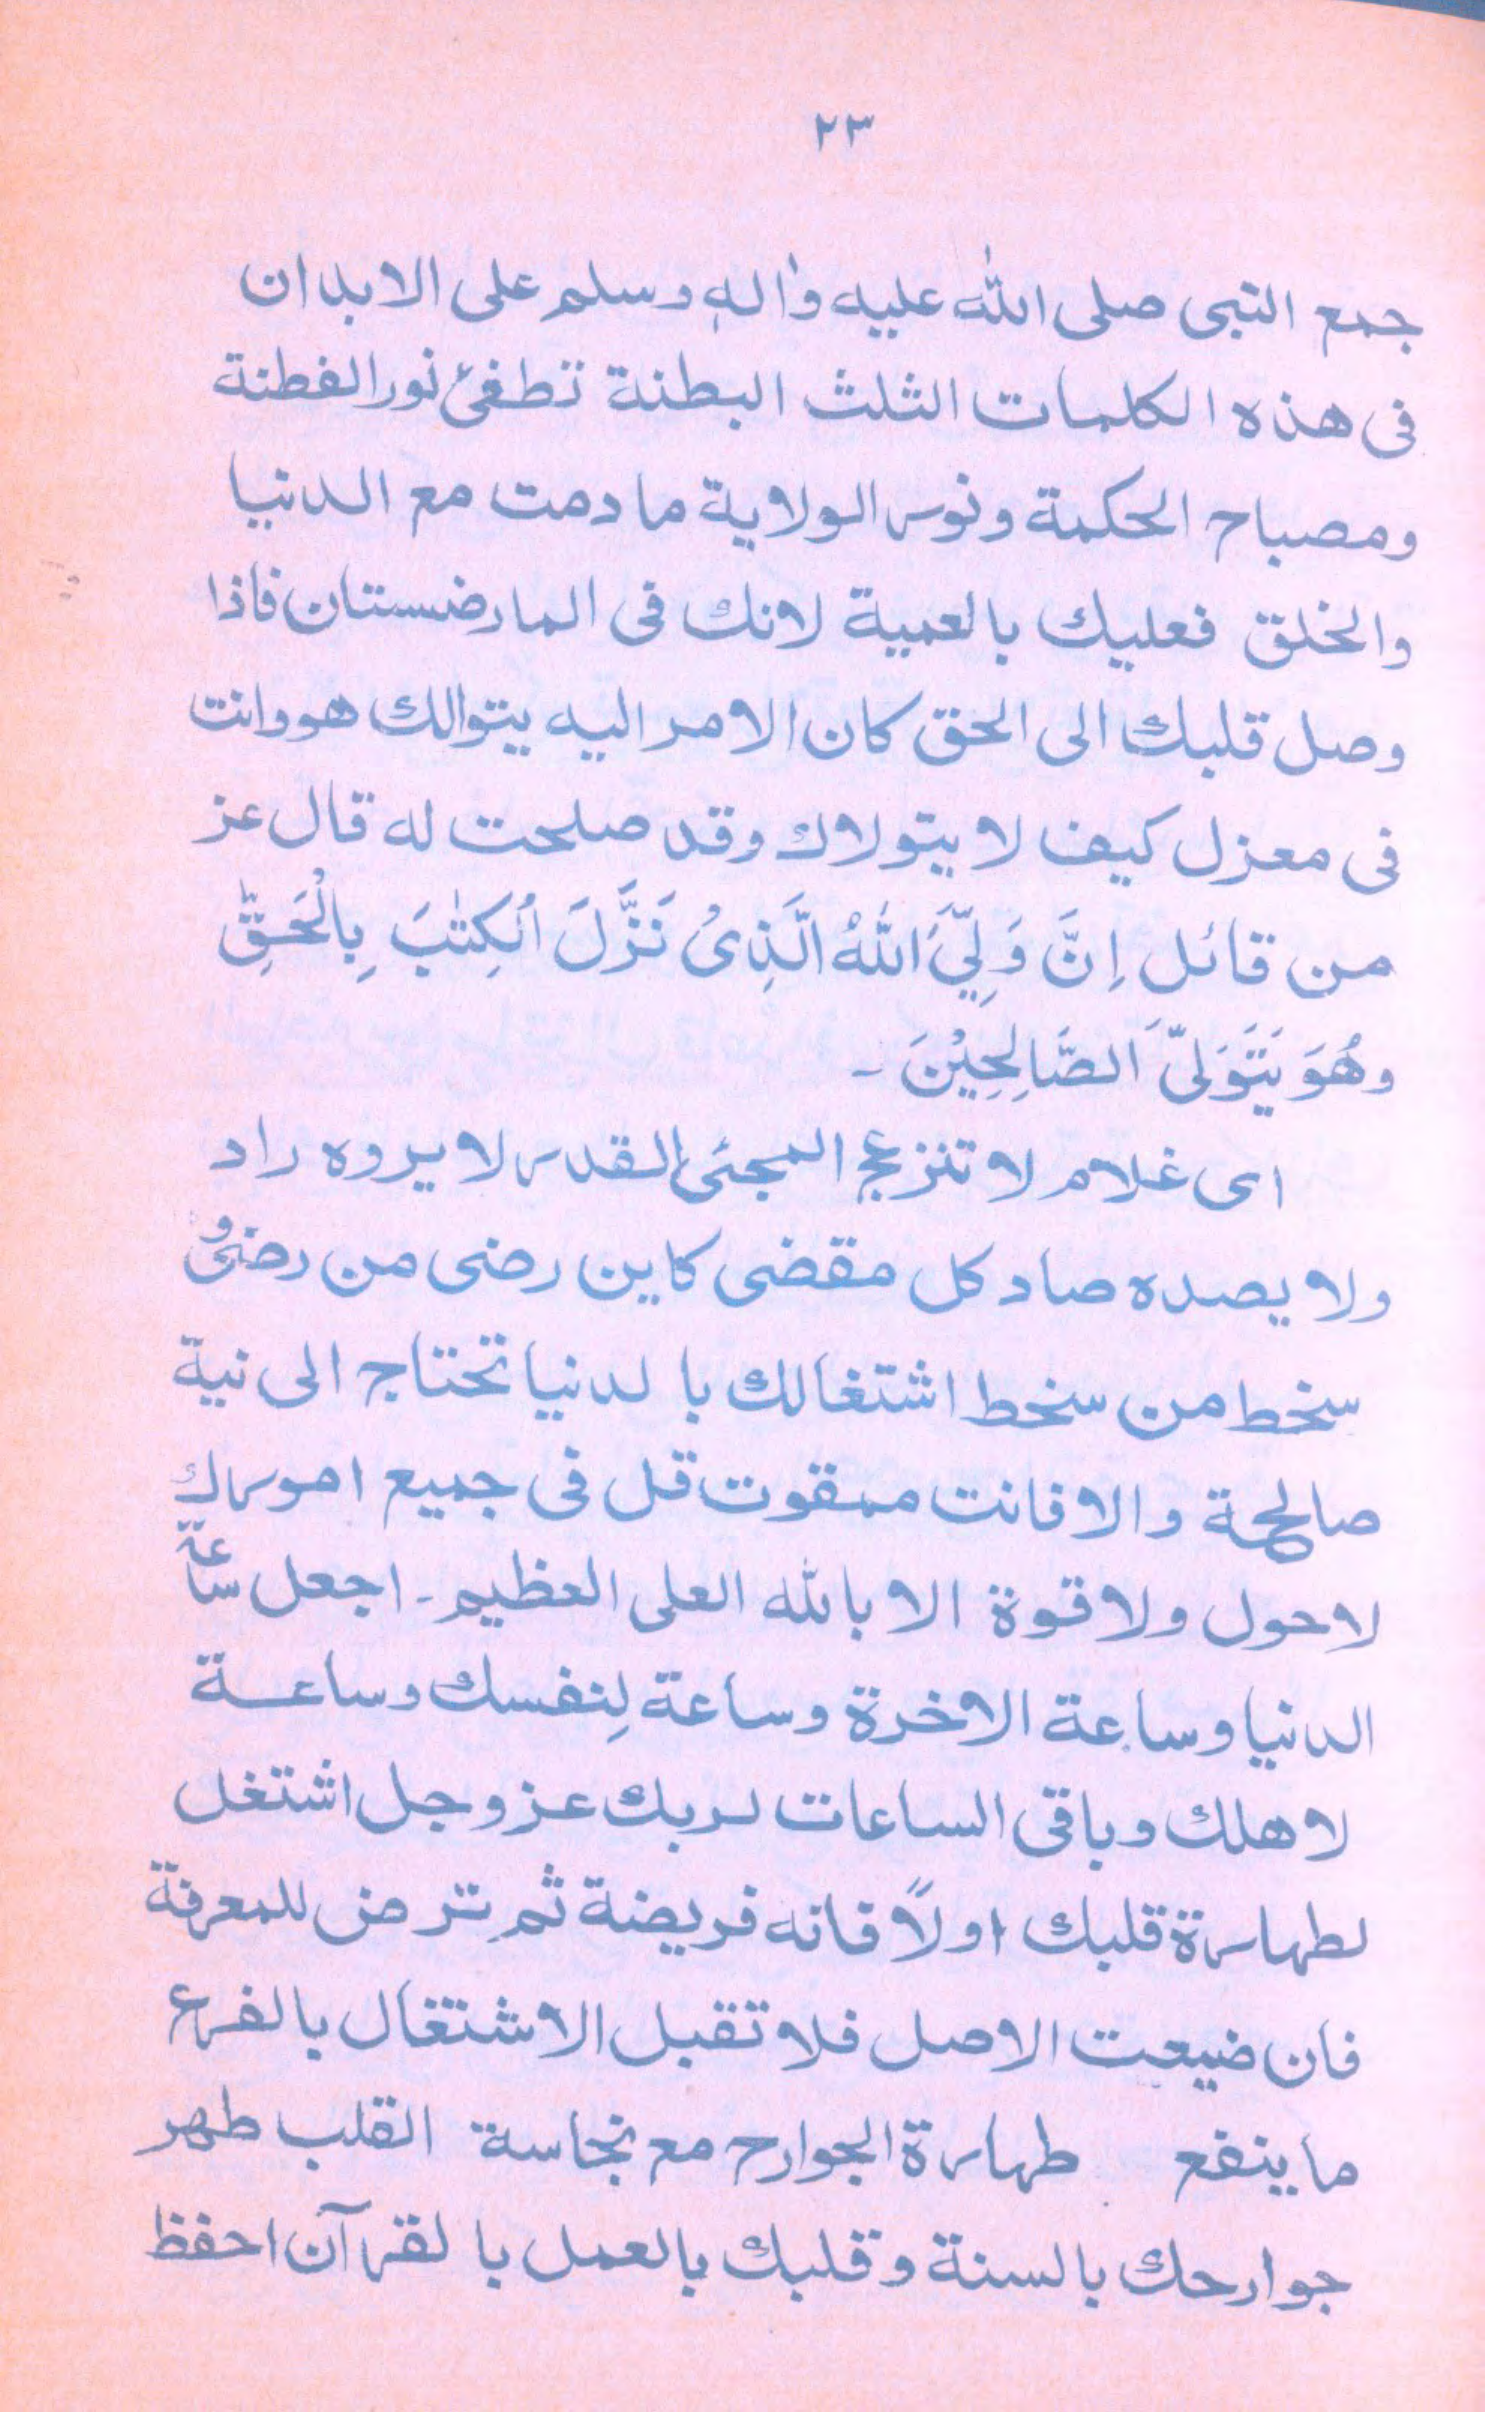 ٢٣
جمع النبى صلى الله عليه واله وسلم على الابدان
فى هذه الكلمات الثلث البطنة تطفئ نور الفطنة
ومصباح الحكمة ونور الولاية مادمت مع الدنيا
والخلق فعليك بالعمية لانك فى المارضستان فاذا
وصل قلبك الى الحق كان الامر اليه يتوالك هو وانت
فى معزل كيف لا يتولاك وقد صلحت له قال عز
من قائل اِنَّ وَلِيَّ اللهُ الَّذِىْ نَزَّلَ الْكِتٰبَ بِالْحَقِّ
وهُوَ يَتَوَلىَّ الصَّالِحِيْنَ ۔
اى غلام لا تنزعج المجئ القدر لا يروه راد
ولا يصده صاد كل مقضى كاين رضى من رضى و
سخط من سخط اشتغالك بالدنيا تحتاج الى نية
صالحة والا فانت ممقوت قل فى جميع امورك
لاحول ولا قوة الا بالله العلى العظيم ۔ اجعل ساعة
الدنيا وساعة الاخرة وساعة لِنفسك وساعة
لاهلك وباقى الساعات لربك عزوجل اشتغل
لطهارة قلبك اولاً فانه فريضة ثم ترض للمعرفة
فان ضيعت الاصل فلا تقبل الاشتغال بالفرع
ما ينفع طهارة الجوارح مع نجاسة القلب طهر
جوارحك بالسنة وقلبك بالعمل بالقرآن احفظ